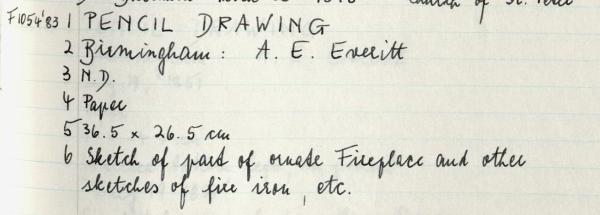 Church of St. Peter
F1054'83 1 PENCIL DRAWING
2 Birmingham: A. E. Everitt
3 N.D.
4 Paper
5 36.5 x 26.5 cm
6 Sketch of part of ornate Fireplace and other
sketches of fire iron, etc.